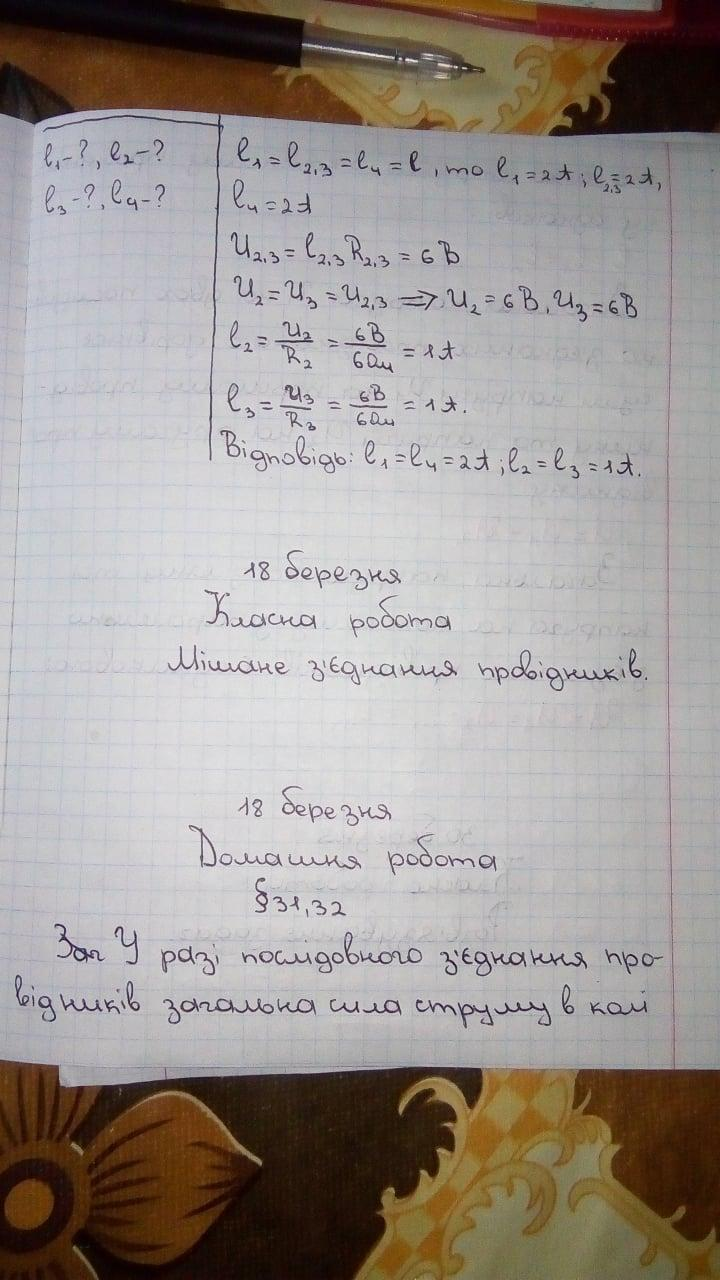 I₁-?, I₂-?
I₃-?, I₄-?
I₁ = I₂,₃ = I₄ = I, то I₁ = 2А; I₂,₃ = 2А,
I₄ = 2А
U₂,₃ = I₂,₃ R₂,₃ = 6В
U₂ = U₃ = U₂,₃ ⇒ U₂ = 6В, U₃ = 6В
I₂ = U₂/R₂ = 6В/6Ом = 1А
I₃ = U₃/R₃ = 6В/6Ом = 1А.
Відповідь: I₁ = I₄ = 2А; I₂ = I₃ = 1А.
18 березня
Класна робота
Мішане з'єднання провідників.
18 березня
Домашня робота
§31,32
У разі послідовного з'єднання про-
відників загальна сила струму в колі